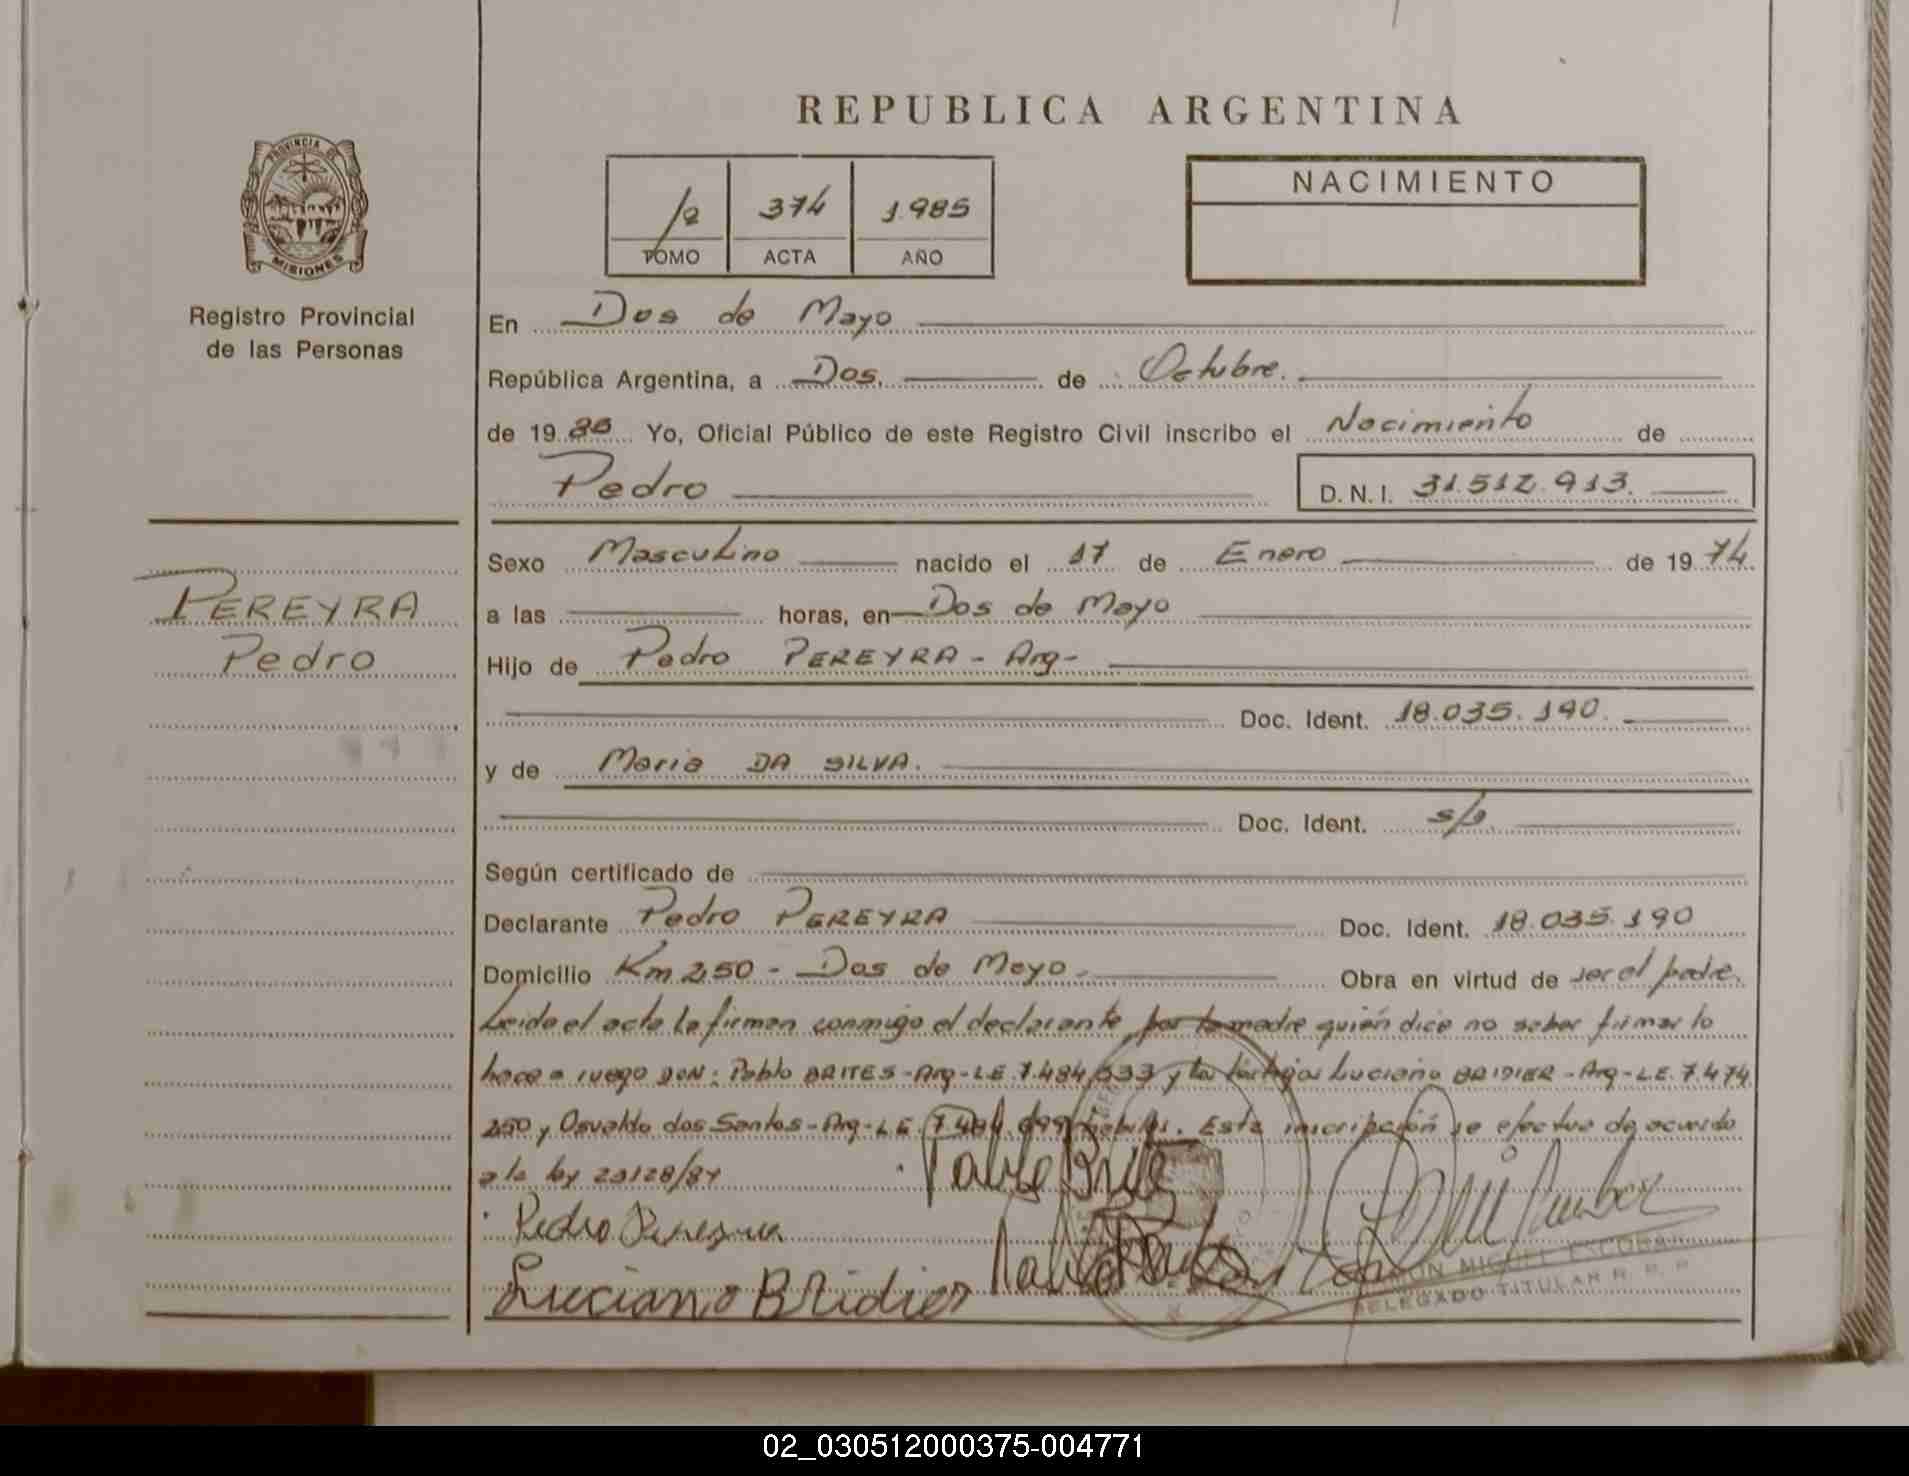 REPUBLICA ARGENTINA
PROVINCIA DE
MISIONES
Registro Provincial
de las Personas
/2 374 1.985
TOMO ACTA AÑO
NACIMIENTO
En Dos de Mayo
República Argentina, a Dos. de Octubre.
de 19 85 Yo, Oficial Público de este Registro Civil inscribo el Nacimiento de
Pedro D.N.I. 31.512.913.
PEREYRA
Pedro
Sexo Masculino nacido el 17 de Enero de 19 74.
a las horas, en Dos de Mayo
Hijo de Pedro PEREYRA - Arg-
Doc. Ident. 18.035.190.
y de Maria DA SILVA.
Doc. Ident.
Según certificado de
Declarante Pedro PEREYRA Doc. Ident. 18.035.190
Domicilio Km 250 - Dos de Mayo. Obra en virtud de ser el padre.
Leida el acta la firman conmigo el declarante, por la madre quién dice no saber firmar lo
hace a ruego DON: Pablo BRITES - Arg - L.E. 7.484.533 y los testigos Luciano BRIDIER - Arg - L.E. 7.474.
250 y Osvaldo dos Santos - Arg - L.E. 7.484.699 habiles. Esta inscripción se efectua de acuerdo
a la ley 23128/84
Pablo Brite
Pedro Pereyra
Luciano BRidier
MIGUEL ESCOBAR
DELEGADO TITULAR R. P. P.
02_030512000375-004771